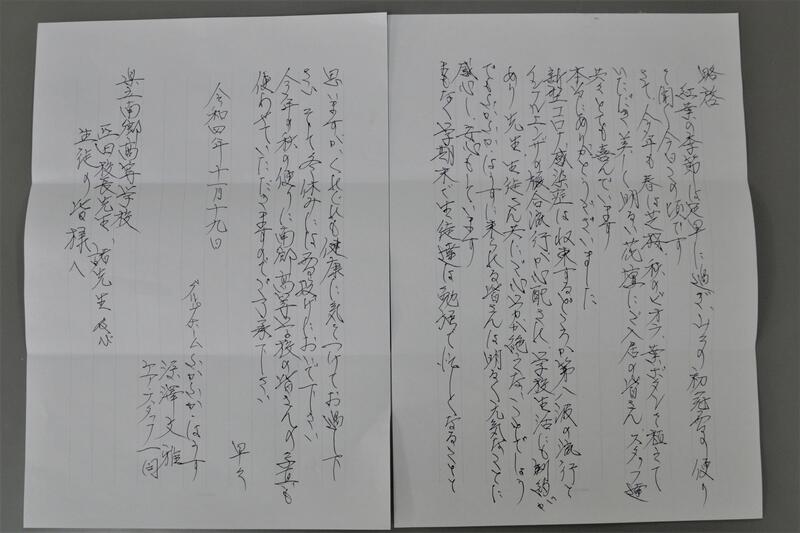 略啓
紅葉の季節は足早に過ぎ、山々の初冠雪の便り
を聞く今日この頃です
さて、今年も春は芝桜、秋のビオラ、葉ボタンを植えて
いただき美しく明るい花壇にご入居の皆さん、スタッフ達
共々とても喜んでいます
本当にありがとうございました
新型コロナ感染症は収束するどころか第八波の流行と
インフルエンザの複合流行が心配され、学校生活にも制約が
あり先生、生徒さん共にご心労が絶えないことでしょう
でもぷかぷかはうすに来られる皆さんは明るく元気なことに
感心し、安心もしています
まもなく学期末で生徒達は勉強で忙しくなることと
思いますが、くれぐれも健康に気をつけてお過し下
さい そして冬休みには雪投げにおいで下さい
今年の秋の便りに南郷高等学校の皆さんの写真も
使わせていただきますのでご了承下さい
早々
令和四年十一月十九日
グループホームぷかぷかはうす
深澤文雅
ケアスタッフ一同
県立南郷高等学校
校長先生、諸先生及び
生徒の皆様へ